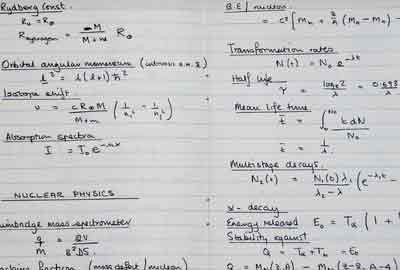 Rydberg Const.
R₀ = R∞
R_hydrogen = M / (M + m) R∞
Orbital angular momentum
l² = l(l+1)ħ²
Isotope shift.
ν = cR∞M / (M+m) (1/n₁² − 1/n₂²)
Absorption spectra
I = I₀e^
NUCLEAR PHYSICS
Bainbridge mass spectrometer
q/M = 2V / B²DS
fraction (mass defect / nucleon)
B.E / nucleon
= c² [Mn + (MH − Mn) −
Transformation rates.
N(t) = N₀ e^−λt
Half life
τ = loge2 / λ = 0.693 / λ
Mean life time.
t̄ = ∫ t dN / N₀
t̄ = 1/λ
Multistage decays.
N₂(t) = N₁(0) λ₁ / (λ₂ − λ) (e^−λ₁t −
α - decay
Energy released E₀ = Tα (1 +
Stability against
Q = Tα + Th = E₀
Q = M(Z,A) − M(Z-2, A-4)